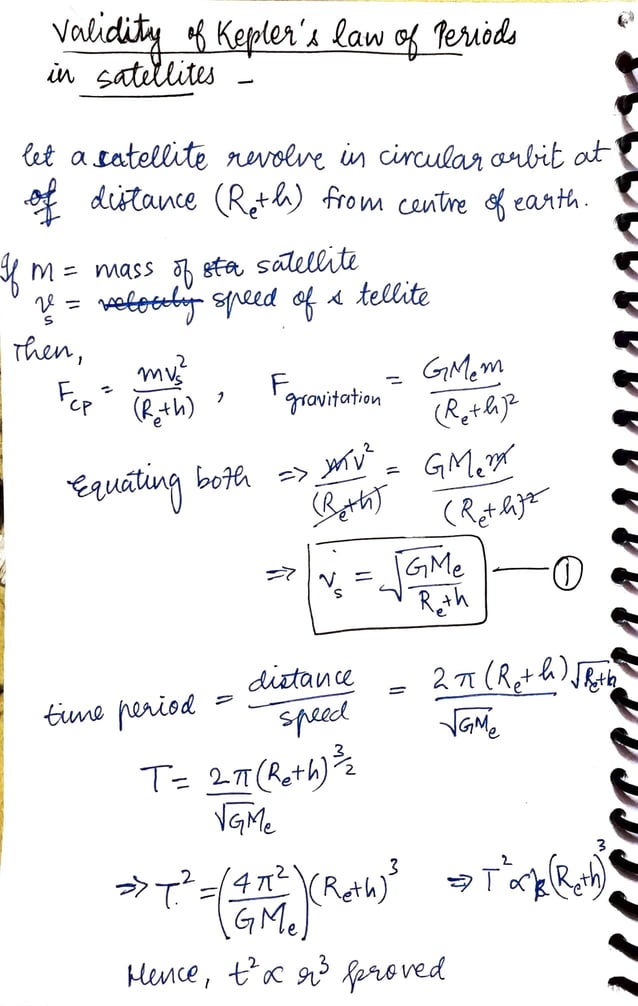 Validity of Kepler's law of Periods
in satellites -
let a satellite revolve in circular orbit at
of distance (Re+h) from centre of earth.
If m = mass of sta satellite
vs = velocity speed of s tellite
Then,
Fcp = mvs²/(Re+h) , Fgravitation = GMem/(Re+h)²
Equating both => mv²/(Re+h) = GMem/(Re+h)²
=> vs = √GMe/Re+h —— ①
time period = distance/speed = 2π(Re+h)√Re+h/√GMe
T = 2π(Re+h)^3/2/√GMe
=> T.² = (4π²/GMe)(Re+h)³ => T²∝k(Re+h)³
Hence, t²∝ r³ proved